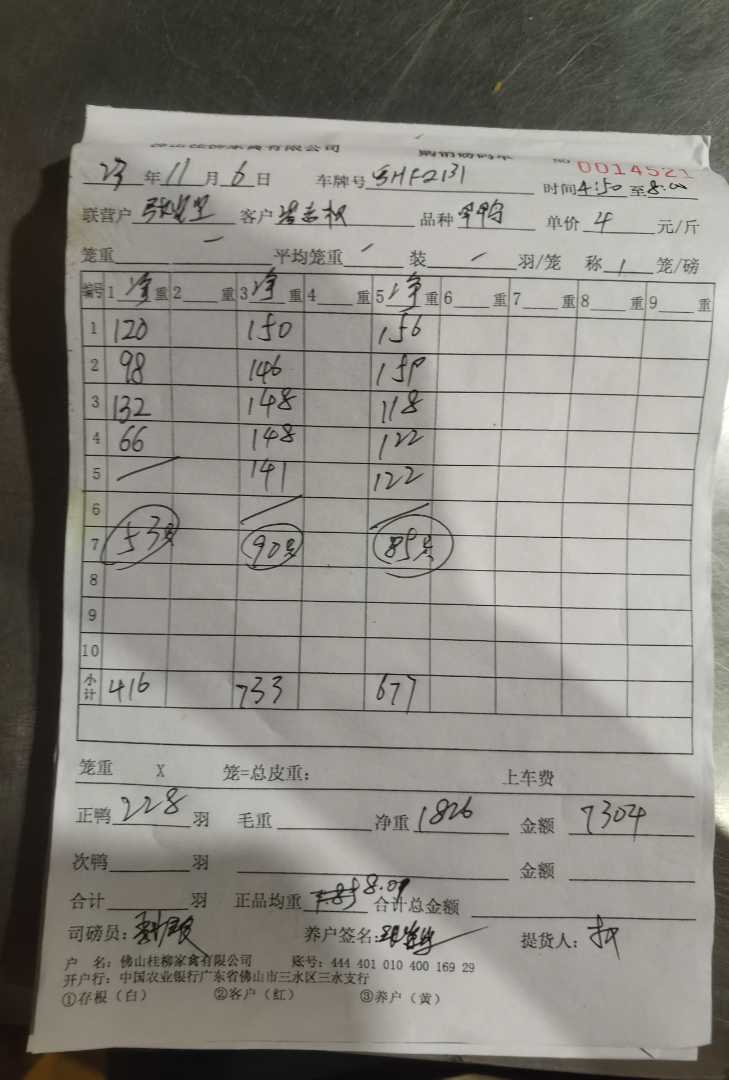 佛山桂柳家禽有限公司 购销磅码单 No 0014521
23 年 11 月 6 日 车牌号 HF2131 时间 4:50 至 8:00
联营户 客户 品种 单价 4 元/斤
笼重 — 平均笼重 — 装 — 羽/笼 称 1 笼/磅
编号 1 净 重 2 重 3 净 重 4 重 5 净 重 6 重 7 重 8 重 9 重
1 120 150 156
2 98 146 159
3 132 148 118
4 66 148 122
5 — 141 122
6
7 53只 90只 85只
8
9
10
小计 416 733 677
笼重 X 笼=总皮重: 上车费
正鸭 228 羽 毛重 净重 1826 金额 7304
次鸭 羽 金额
合计 羽 正品均重 8.01 合计总金额
司磅员: 养户签名: 提货人:
户 名: 佛山桂柳家禽有限公司 账号: 444 401 010 400 169 29
开户行: 中国农业银行广东省佛山市三水区三水支行
①存根(白) ②客户(红) ③养户(黄)